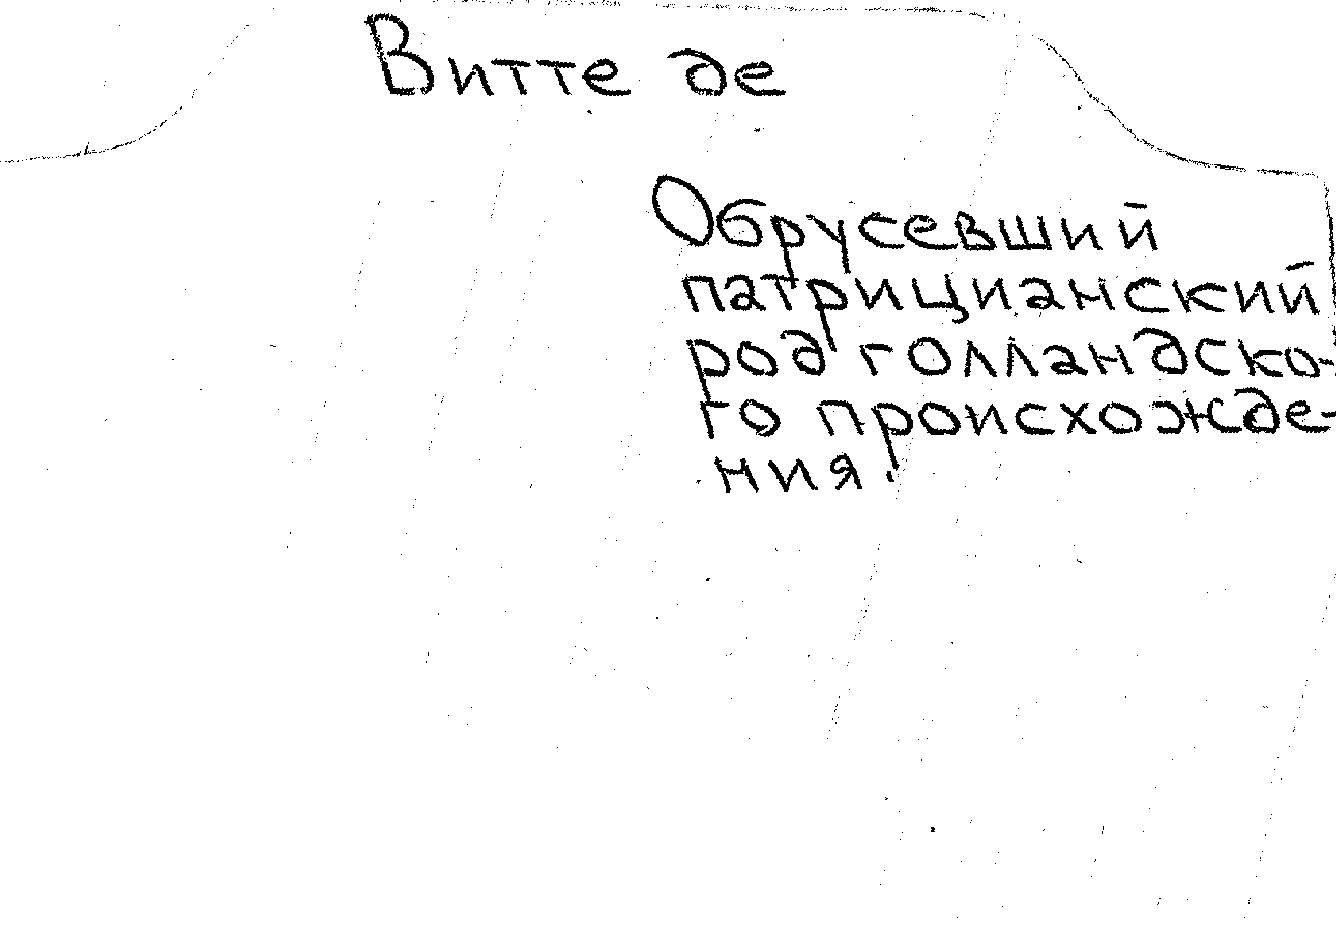 Витте де
Обрусевший
патрицианский
род голландско-
го происхожде-
ния.